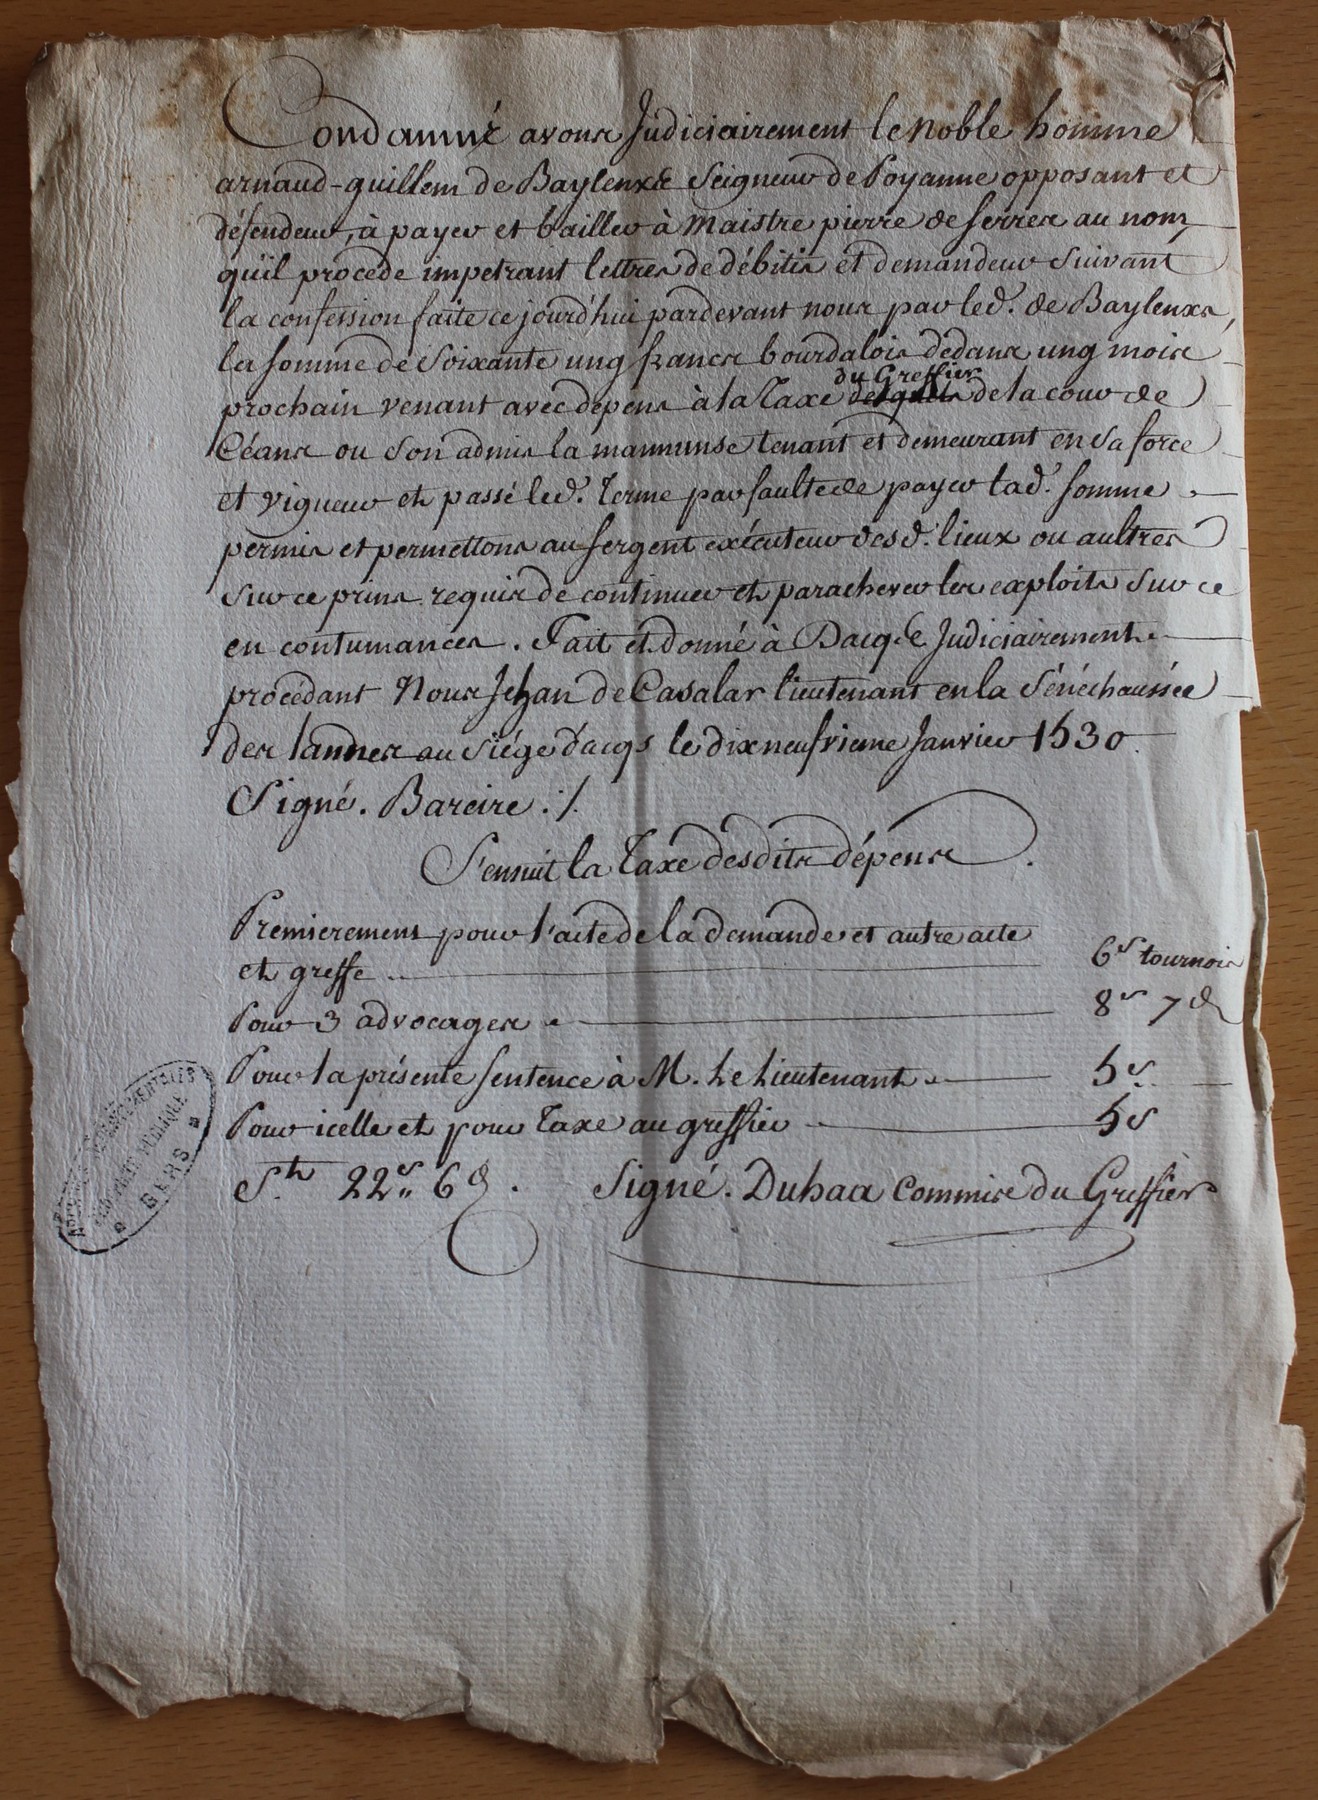 Condamné avons Judiciairement le noble homme
arnaud-guillem de Baylenxs Seigneur de Poyanne opposant et
défendeur, à payer et bailler à Maistre pierre de serres au nom
qu'il procede impetrant lettres de débitis et demandeur suivant
la confession faite ce jourd'hui pardevant nous par led. de Baylenxs,
la somme de soixante ung francs bourdalois dedans ung mois
prochain venant avec dépens à la Taxe du Greffier de la cour de
Céans ou son admis la manmunse tenant et demeurant en sa force
et vigueur et passé led. terme par faulte de payer lad. somme
permis et permettons au sergent exécuteur desd. lieux ou aultres
sur ce prins requis de continuer et parachever les exploits sur ce
en contumances. Fait et donné à Dacq, & Judiciairement
procédant Nous Jehan de Casalar lieutenant en la Sénéchaussée
des lannes au siége d'acqs le dixneufvieme Janvier 1530.
Signé. Bareire ./.
S'ensuit la Taxe desdits dépens.
Premierement pour l'acte de la demande et autre acte
et greffe 6s tournois
Pour 3 advocages 8s 7d
Pour la présente sentence à M. Le Lieutenant 5s
Pour icelle et pour Taxe au greffier 5s
St 22s 6d. Signé. Duhaa Commis du Greffier
ARCHIVES DEPARTEMENTALES
PROPRIETE PUBLIQUE
GERS